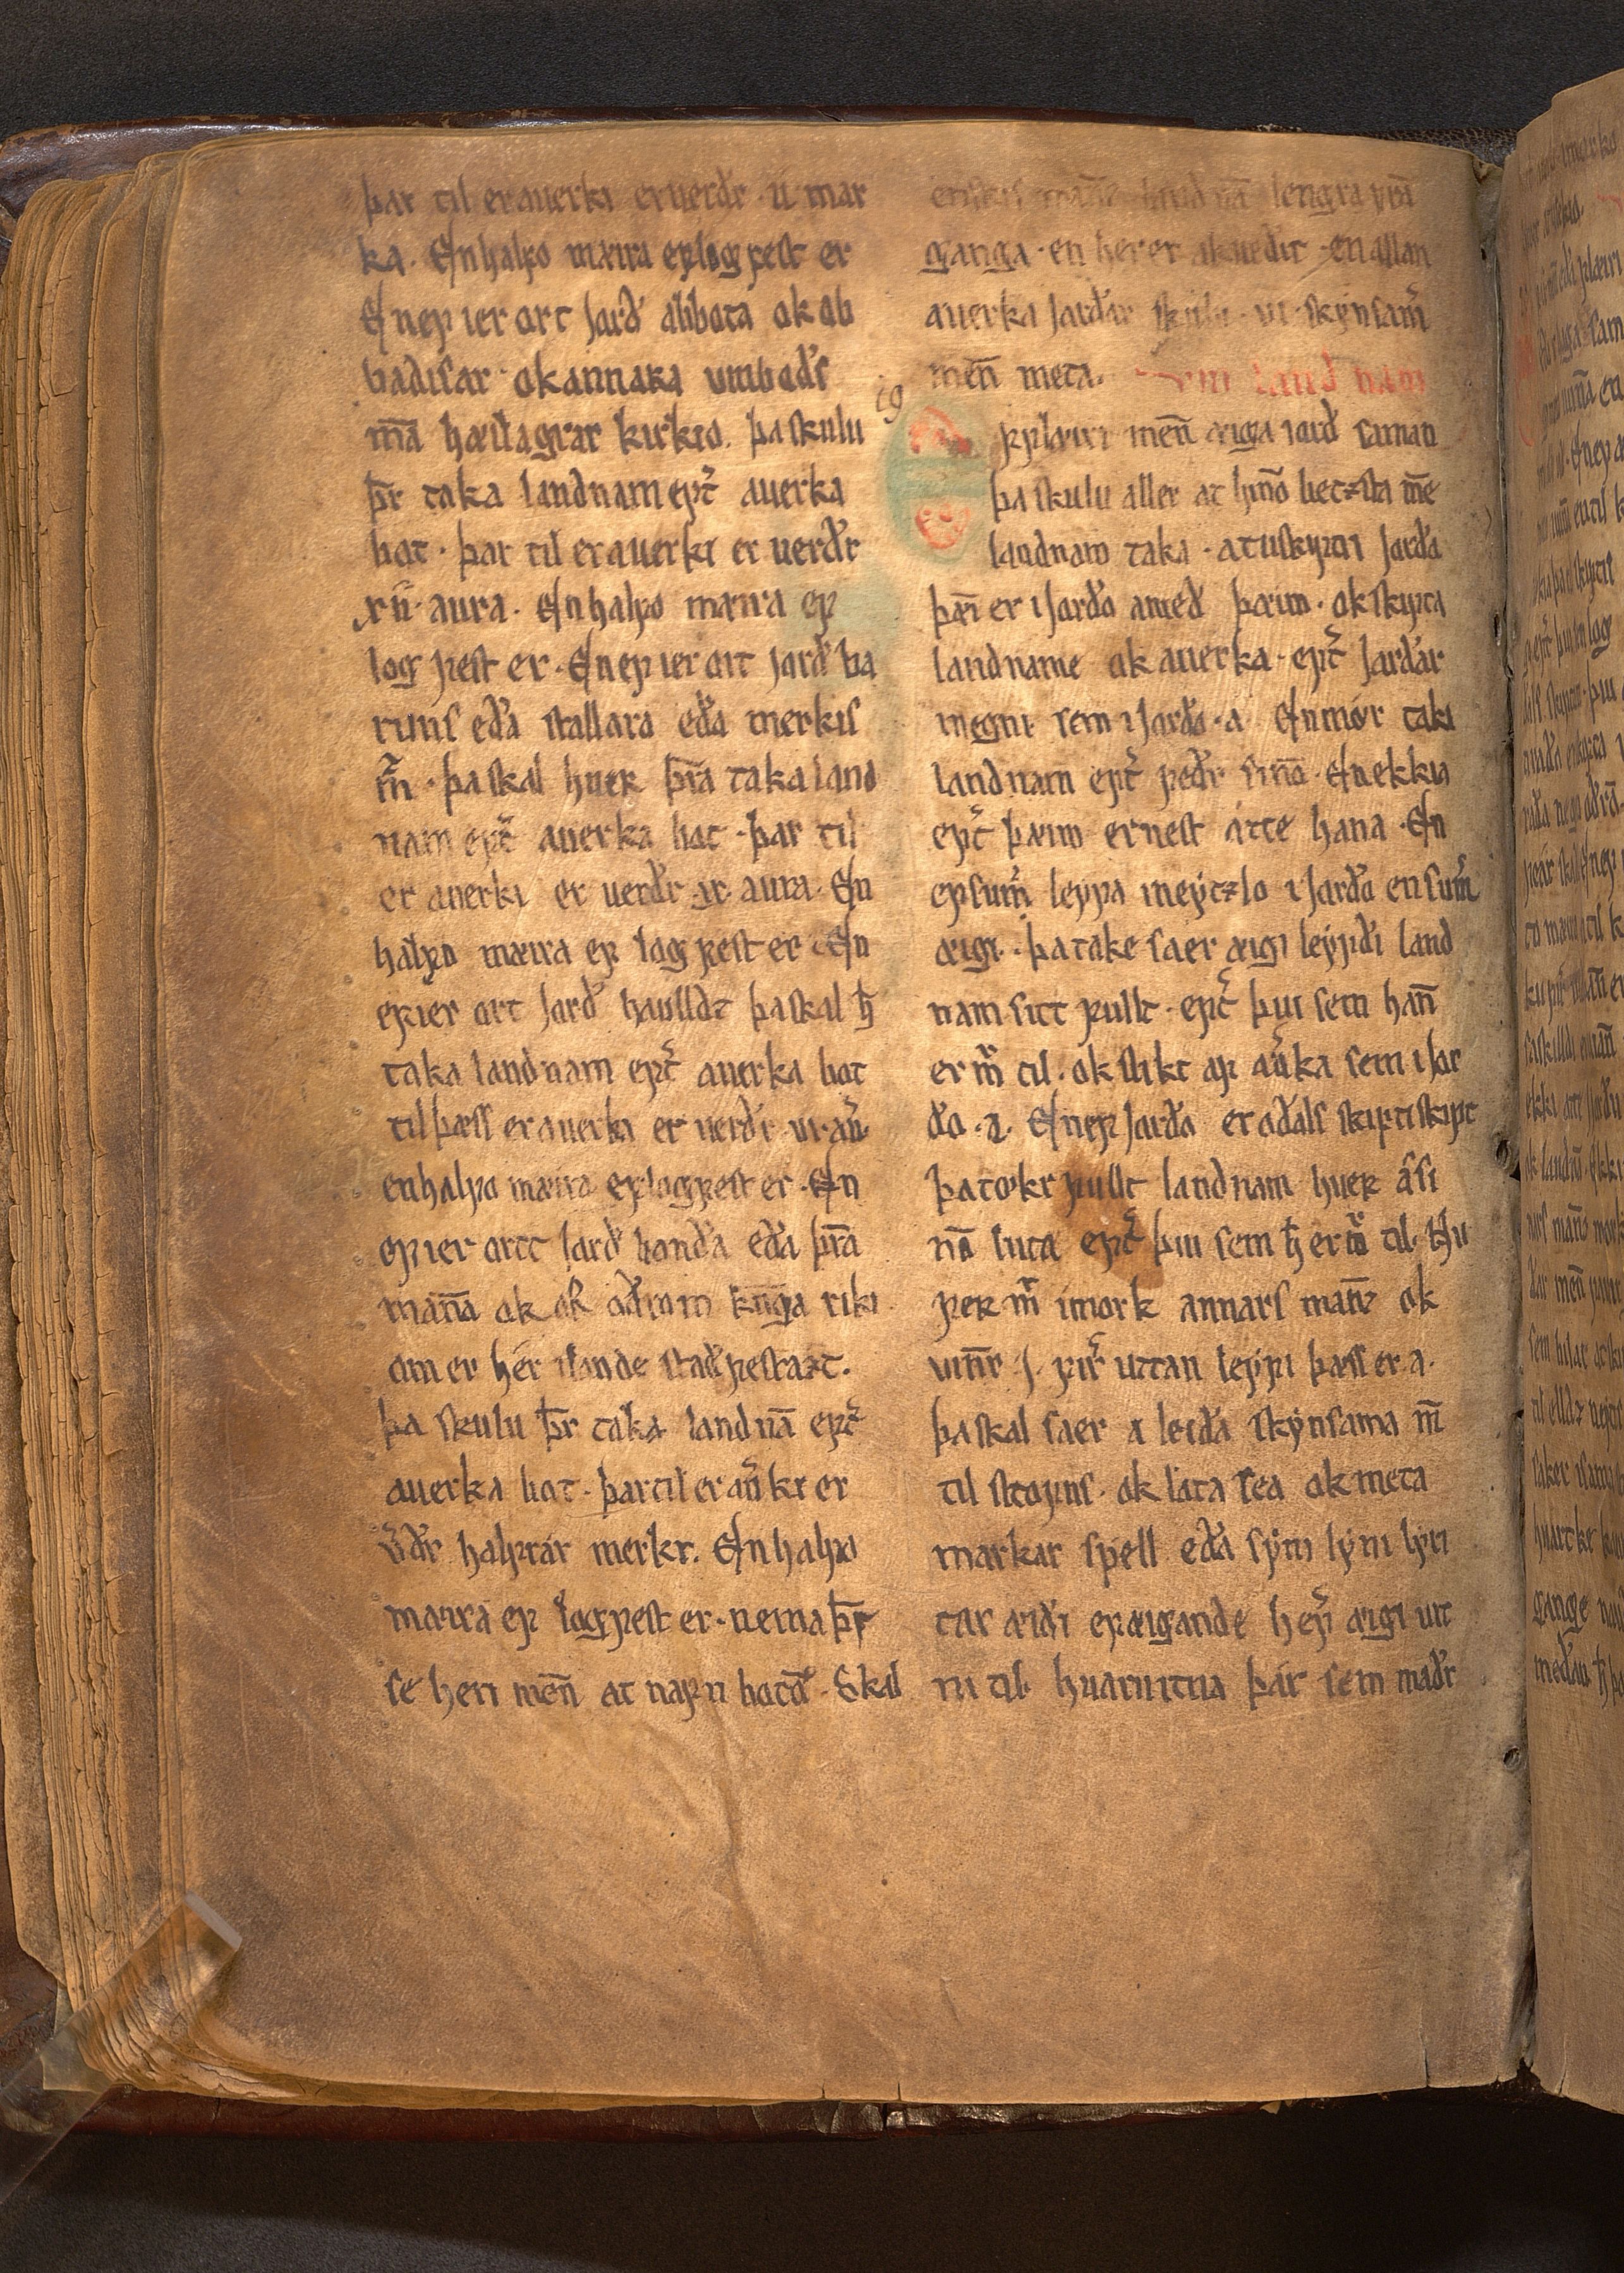 þar til er auerki er uerðr .ij. mar
ka. En halfo mæira ef log fest er
En ef ier ort jorð abbota ok ab
badisar ok annara vmboðs
m̄a hæilagrar kirkio. þa skulu
þr̄ taka landnam ept̄ auerka
bot. þar til er auerki er uerðr
xij. aura. En halfo mæira ef
log fest er. En ef ier ort jorð ba
runs eða stallara eða merkis
m̄. þa skal huer þr̄a taka land
nam ept̄ auerka bot. þar til
er auerki er uerðr .ix. aura. En
halfo mæira ef log fest er. En
ef ier ort jorð haulldz þa skal h̄
taka landnam ept̄ auerka bot
til þæss er auerki er uerðr .vi. au᷎.
en halfo mæira ef log fest er. En
ef ier ortt jorð bonda eða þr̄a
man̄a ok af oðrom kn̄ga riki
om er hér ilande staðfestazt.
þa skulu þr̄ taka landnā ept̄
auerka bot. þar til er au᷎ki er
u᷎ðr halfrar merkr. En halfo
mæira ef logfest er. nema þr̄
se heri men̄ at nafn botō. Skal
land nā lengra frā
ganga. en her er akuedit. en allan
auerka jarðar skulu .vi. skynsam᷎
men̄ meta. vm land nam
19
Ef flæiri men̄ æiga iorð saman
þa skulu aller at hin̄o betzsta m̄e
landnam taka. at uskyfti jorðo
þæi er i jorðo a með þæim. ok skyfta
landname ok auerka. ept̄ jarðar
megni sem i jorðo. a. En mór taki
landnam ept̄ feðr sin̄o. En ekkia
ept̄ þæim er nest átte hana. En
ef sum᷎ leyfa neytzlo i jorðo en sum᷎
æigi. þa take sa er æigi leyfði land
nam sitt fullt. ept̄ þui sem han̄
er m᷎ til. ok slikt af au᷎ka sem i jor
ðo. a. En ef jorðo er oðals skifti skipt
þa tokr fullt landnam huer a si
no luta ept̄ þui sem h̄ er m᷎ til. Hu
fer m᷎ i mork annars man̄z ok
vin̄r .s. fir᷎ uttan leyfi þæss er. a.
þa skal sa er a leiða skynsama m̄
til stofns. ok lata sea ok meta
markar spell eða syni lyri lyri
tar æiði ef æigande hef᷎ æigi uit
ni til. huaruitna þár sem maðr